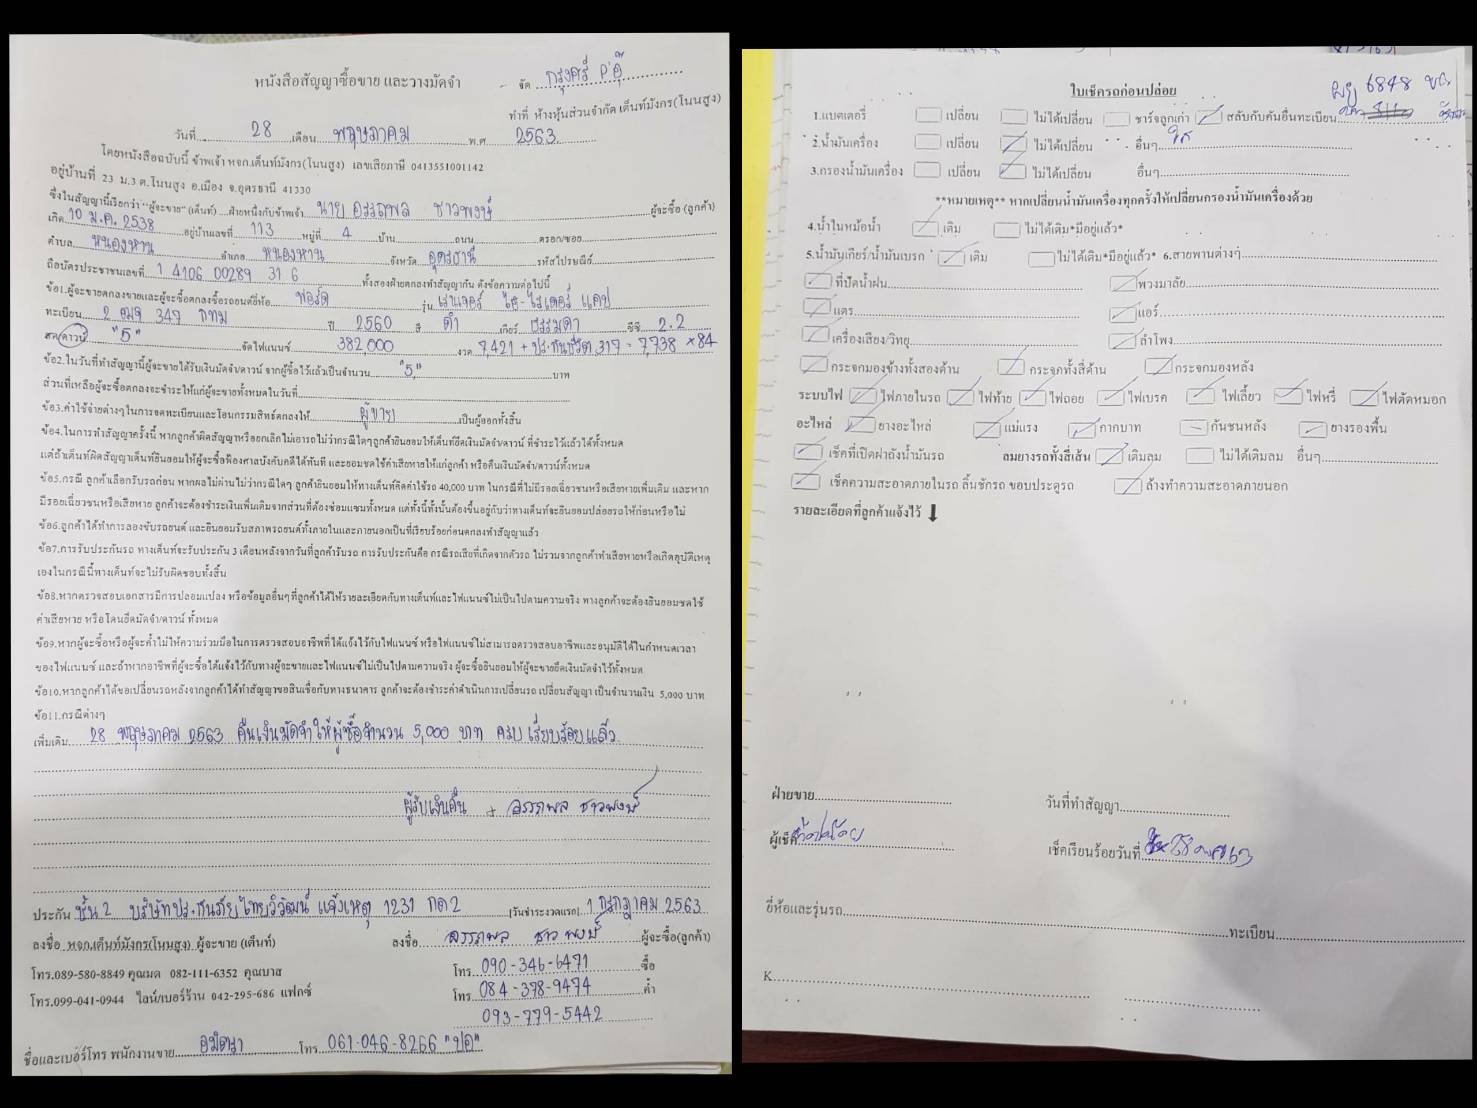 หนังสือสัญญาซื้อขาย และวางมัดจำ
จัด กรุงศรี P'อุ๊
ทำที่ ห้างหุ้นส่วนจำกัด เต็นท์มังกร(โนนสูง)
วันที่ 28 เดือน พฤษภาคม พ.ศ 2563
โดยหนังสือฉบับนี้ ข้าพเจ้า หจก.เต็นท์มังกร(โนนสูง) เลขเสียภาษี 0413551001142
อยู่บ้านที่ 23 ม.3 ต.โนนสูง อ.เมือง จ.อุดรธานี 41330
ซึ่งในสัญญานี้เรียกว่า "ผู้จะขาย" (เต็นท์) ฝ่ายหนึ่งกับข้าพเจ้า นาย อรรถพล ชาวพงษ์ ผู้จะซื้อ (ลูกค้า)
เกิด 10 ม.ค. 2538 อยู่บ้านเลขที่ 113 หมู่ที่ 4 บ้าน ถนน ตรอก/ซอย
ตำบล หนองหาน อำเภอ หนองหาน จังหวัด อุดรธานี รหัสไปรษณีย์
ถือบัตรประชาชนเลขที่ 1 4106 00289 31 6 ทั้งสองฝ่ายตกลงทำสัญญากัน ดังข้อความต่อไปนี้
ข้อ1.ผู้จะขายตกลงขายและผู้จะซื้อตกลงซื้อรถยนต์ยี่ห้อ ฟอร์ด รุ่น เรนเจอร์ ไฮ-ไรเดอร์ แคป
ทะเบียน 2 ฒฎ 347 กทม ปี 2560 สี ดำ เกียร์ ธรรมดา ซีซี 2.2
สด/ดาวน์ "5" จัดไฟแนนซ์ 382,000 งวด 7,421 + ปร.กันชีวิต 317 = 7,738 × 84
ข้อ2.ในวันที่ทำสัญญานี้ผู้จะขายได้รับเงินมัดจำ/ดาวน์ จากผู้ซื้อไว้แล้วเป็นจำนวน "5," บาท
ส่วนที่เหลือผู้จะซื้อตกลงจะชำระให้แก่ผู้จะขายทั้งหมดในวันที่
ข้อ3.ค่าใช้จ่ายต่างๆในการจดทะเบียนและโอนกรรมสิทธ์ตกลงให้ ผู้ขาย เป็นผู้ออกทั้งสิ้น
ข้อ4.ในการทำสัญญาครั้งนี้ หากลูกค้าผิดสัญญาหรือยกเลิกไม่เอารถไม่ว่ากรณีใดๆลูกค้ายินยอมให้เต็นท์ยึดเงินมัดจำ/ดาวน์ ที่ชำระไว้แล้วได้ทั้งหมด
แต่ถ้าเต็นท์ผิดสัญญาเต็นท์ยินยอมให้ผู้จะซื้อฟ้องศาลบังคับคดีได้ทันที และยอมชดใช้ค่าเสียหายให้แก่ลูกค้า หรือคืนเงินมัดจำ/ดาวน์ทั้งหมด
ข้อ5.กรณี ลูกค้าเลือกรับรถก่อน หากผลไม่ผ่านไม่ว่ากรณีใดๆ ลูกค้ายินยอมให้ทางเต็นท์คิดค่าใช้รถ 40,000 บาท ในกรณีที่ไม่มีรอยเฉี่ยวชนหรือเสียหายเพิ่มเติม และหาก
มีรอยเฉี่ยวชนหรือเสียหาย ลูกค้าจะต้องชำระเงินเพิ่มเติมจากส่วนที่ต้องซ่อมแซมทั้งหมด แต่ทั้งนี้ทั้งนั้นต้องขึ้นอยู่กับว่าทางเต็นท์จะยินยอมปล่อยรถให้ก่อนหรือไม่
ข้อ6.ลูกค้าได้ทำการลองขับรถยนต์ และยินยอมรับสภาพรถยนต์ทั้งภายในและภายนอกเป็นที่เรียบร้อยก่อนตกลงทำสัญญาแล้ว
ข้อ7.การรับประกันรถ ทางเต็นท์จะรับประกัน 3 เดือนหลังจากวันที่ลูกค้ารับรถ การรับประกันคือ กรณีรถเสียที่เกิดจากตัวรถ ไม่รวมจากลูกค้าทำเสียหายหรือเกิดอุบัติเหตุ
เองในกรณีนี้ทางเต็นท์จะไม่รับผิดชอบทั้งสิ้น
ข้อ8.หากตรวจสอบเอกสารมีการปลอมแปลง หรือข้อมูลอื่นๆที่ลูกค้าได้ให้รายละเอียดกับทางเต็นท์และไฟแนนซ์ไม่เป็นไปตามความจริง ทางลูกค้าจะต้องยินยอมชดใช้
ค่าเสียหาย หรือโดนยึดมัดจำ/ดาวน์ ทั้งหมด
ข้อ9.หากผู้จะซื้อหรือผู้จะค้ำไม่ให้ความร่วมมือในการตรวจสอบอาชีพที่ได้แจ้งไว้กับไฟแนนซ์ หรือไฟแนนซ์ไม่สามารถตรวจสอบอาชีพและอนุมัติได้ในกำหนดเวลา
ของไฟแนนซ์ และถ้าหากอาชีพที่ผู้จะซื้อได้แจ้งไว้กับทางผู้จะขายและไฟแนนซ์ไม่เป็นไปตามความจริง ผู้จะซื้อยินยอมให้ผู้จะขายยึดเงินมัดจำไว้ทั้งหมด
ข้อ10.หากลูกค้าได้ขอเปลี่ยนรถหลังจากลูกค้าได้ทำสัญญาขอสินเชื่อกับทางธนาคาร ลูกค้าจะต้องชำระค่าดำเนินการเปลี่ยนรถ เปลี่ยนสัญญา เป็นจำนวนเงิน 5,000 บาท
ข้อ11.กรณีต่างๆ
เพิ่มเติม 28 พฤษภาคม 2563 คืนเงินมัดจำให้ผู้ซื้อจำนวน 5,000 บาท ครบ เรียบร้อยแล้ว
ผู้รับเงินคืน + อรรถพล ชาวพงษ์
ประกัน ชั้น 2 บริษัทปร.กันภัยไทยวิวัฒน์ แจ้งเหตุ 1231 กด 2 (วันชำระงวดแรก) 1 กรกฎาคม 2563
ลงชื่อ หจก.เต็นท์มังกร(โนนสูง) ผู้จะขาย (เต็นท์) ลงชื่อ อรรถพล ชาวพงษ์ ผู้จะซื้อ(ลูกค้า)
โทร.089-580-8849 คุณมด 082-111-6352 คุณบาส โทร 090-346-6471 ซื้อ
โทร.099-041-0944 ไลน์/เบอร์ร้าน 042-295-686 แฟกซ์ โทร 084-378-9474 ค้ำ
093-779-5442
ชื่อและเบอร์โทร พนักงานขาย อมิตตา โทร 061-046-8266 "ปอ"
ใบเช็ครถก่อนปล่อย
6848
1.แบตเตอรี่ เปลี่ยน ไม่ได้เปลี่ยน ชาร์จลูกเก่า สลับกับคันอื่นทะเบียน
2.น้ำมันเครื่อง เปลี่ยน ไม่ได้เปลี่ยน อื่นๆ ใส
3.กรองน้ำมันเครื่อง เปลี่ยน ไม่ได้เปลี่ยน อื่นๆ
**หมายเหตุ** หากเปลี่ยนน้ำมันเครื่องทุกครั้งให้เปลี่ยนกรองน้ำมันเครื่องด้วย
4.น้ำในหม้อน้ำ เติม ไม่ได้เติม*มีอยู่แล้ว*
5.น้ำมันเกียร์/น้ำมันเบรก เติม ไม่ได้เติม*มีอยู่แล้ว* 6.สายพานต่างๆ
ที่ปัดน้ำฝน พวงมาลัย
แตร แอร์
เครื่องเสียง/วิทยุ ลำโพง
กระจกมองข้างทั้งสองด้าน กระจกทั้งสี่ด้าน กระจกมองหลัง
ระบบไฟ ไฟภายในรถ ไฟท้าย ไฟถอย ไฟเบรค ไฟเลี้ยว ไฟหรี่ ไฟตัดหมอก
อะไหล่ ยางอะไหล่ แม่แรง กากบาท กันชนหลัง ยางรองพื้น
เช็คที่เปิดฝาถังน้ำมันรถ ลมยางรถทั้งสี่เส้น เติมลม ไม่ได้เติมลม อื่นๆ
เช็คความสะอาดภายในรถ ลิ้นชักรถ ขอบประตูรถ ล้างทำความสะอาดภายนอก
รายละเอียดที่ลูกค้าแจ้งไว้
ฝ่ายขาย วันที่ทำสัญญา
ผู้เช็ค เช็คเรียบร้อยวันที่
ยี่ห้อและรุ่นรถ ทะเบียน
K